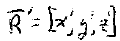 R̄' = [x', y', z']